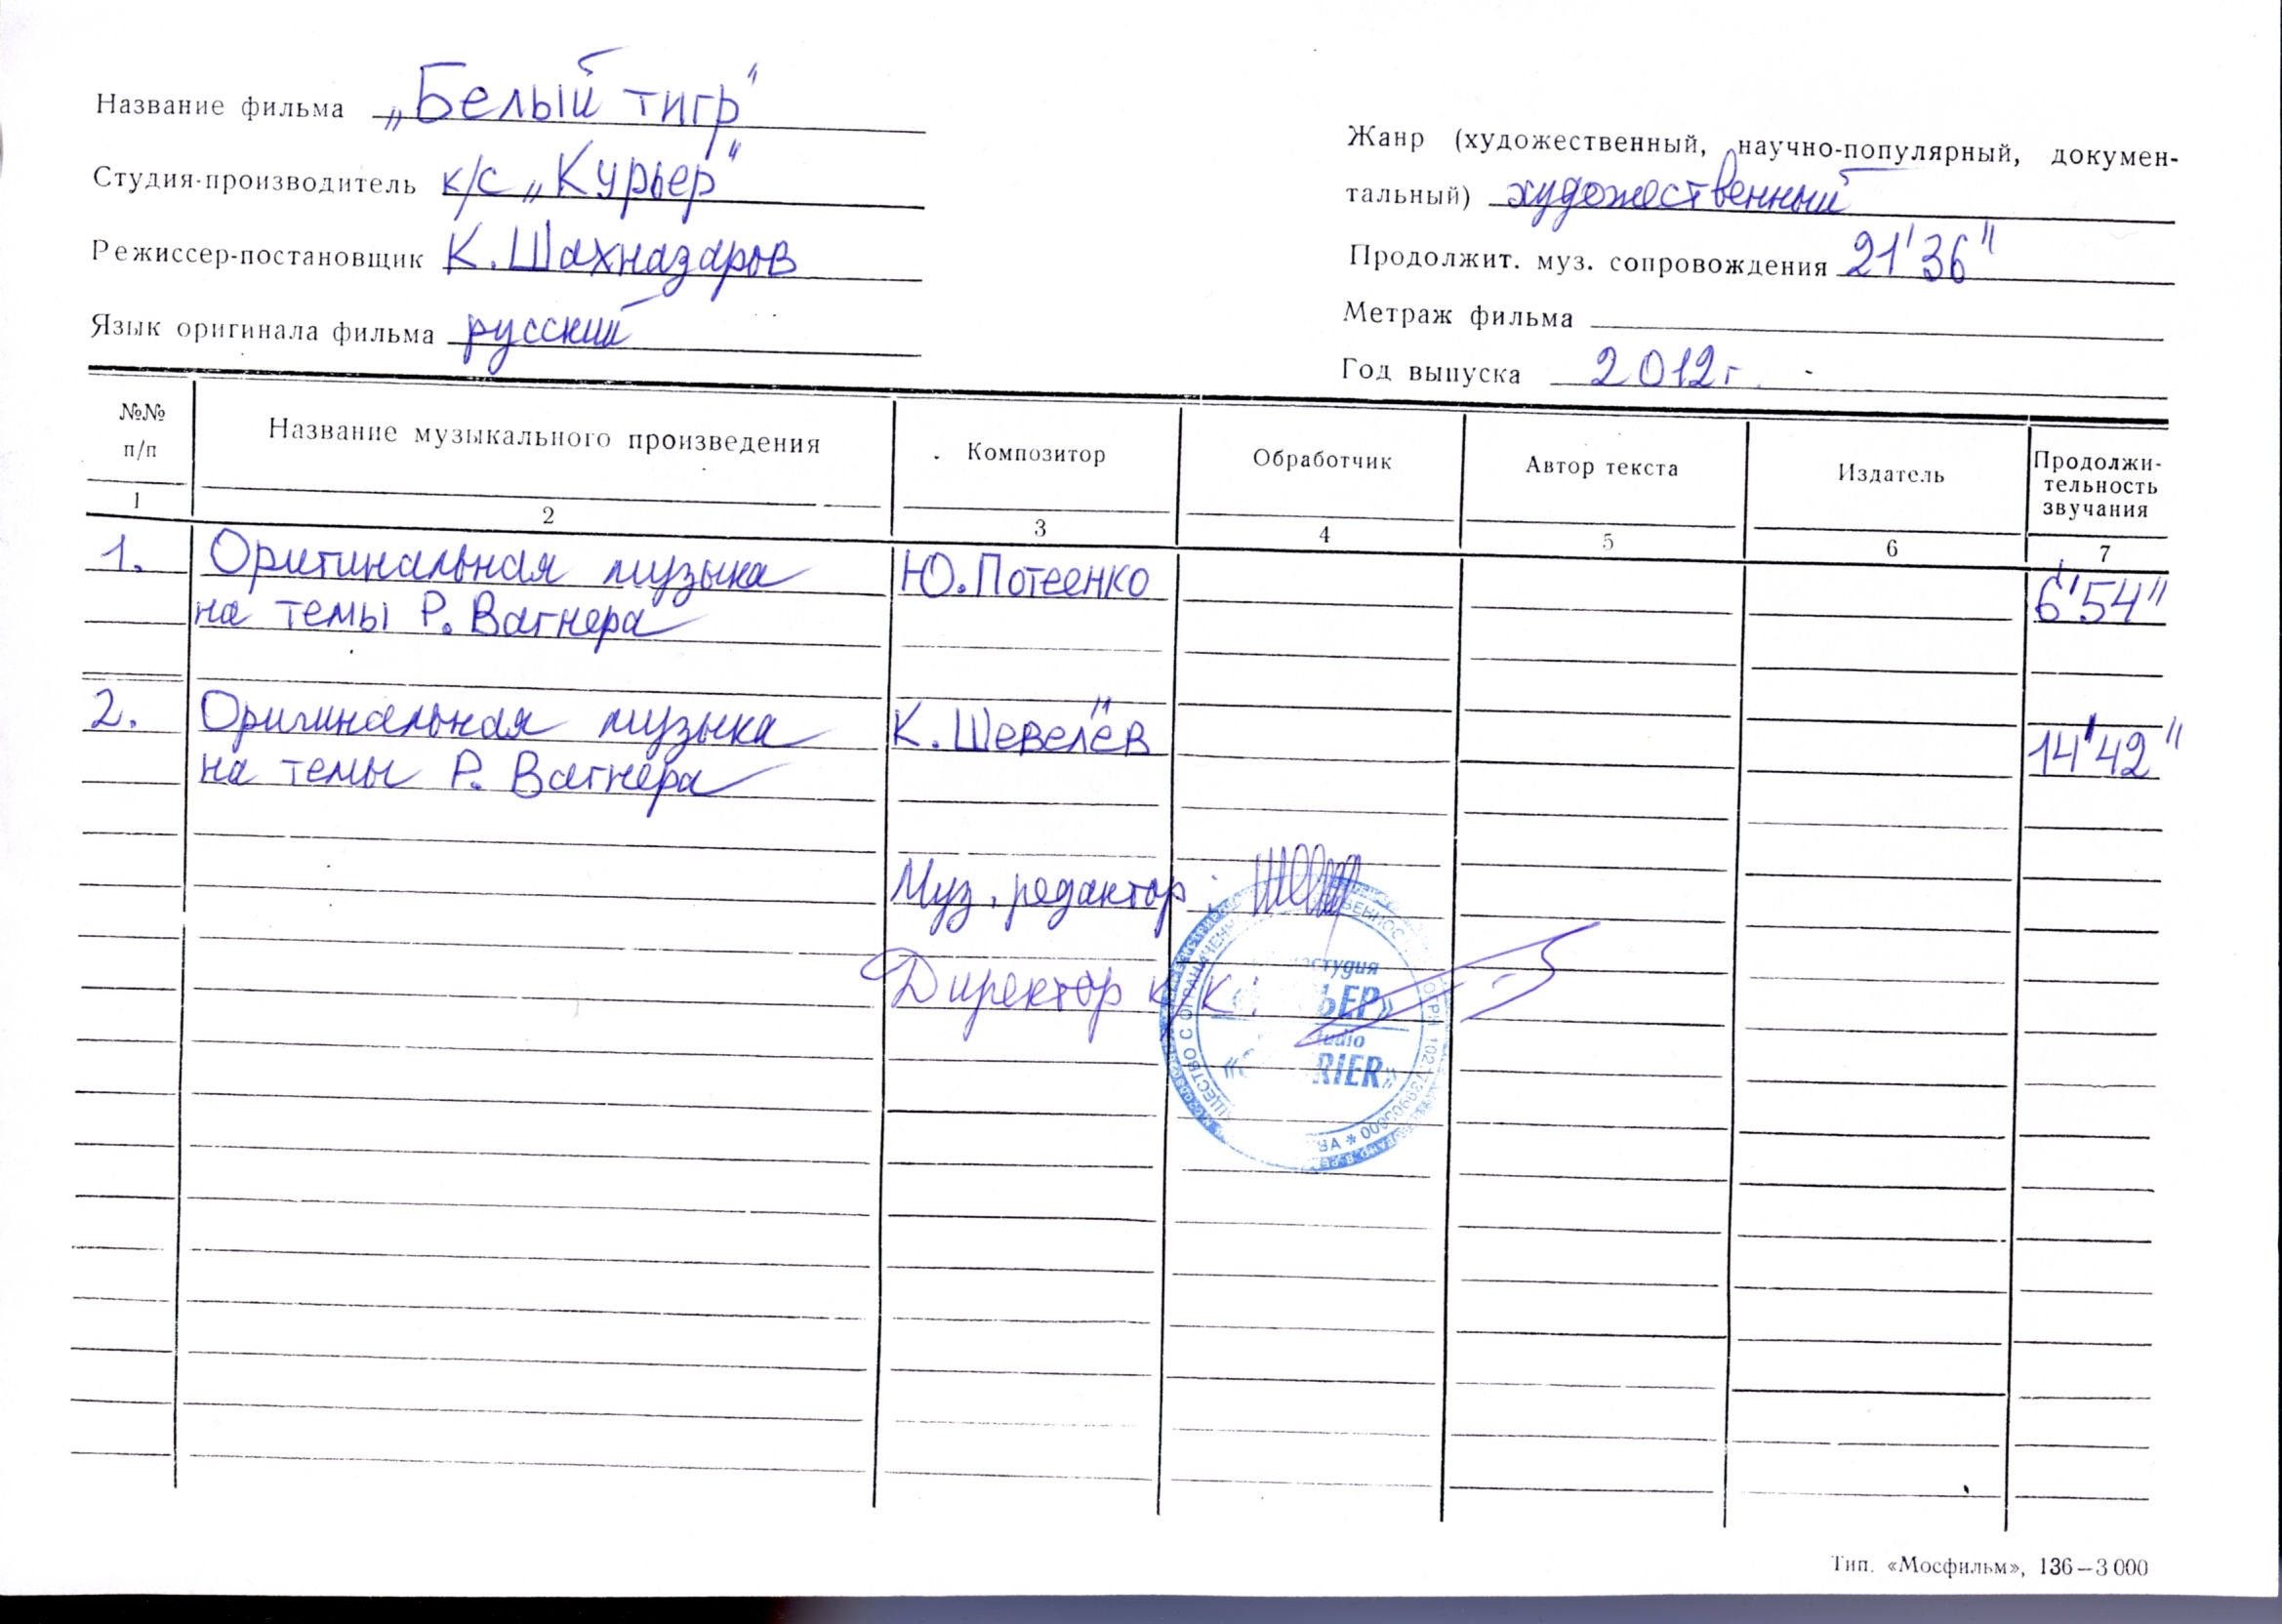 Название фильма „Белый тигр“
Студия-производитель к/с „Курьер“
Режиссер-постановщик К. Шахназаров
Язык оригинала фильма русский
Жанр (художественный, научно-популярный, докумен-
тальный) художественный
Продолжит. муз. сопровождения 21'36"
Метраж фильма
Год выпуска 2012г.
№№ п/п
Название музыкального произведения
Композитор
Обработчик
Автор текста
Издатель
Продолжи-
тельность
звучания
1 2 3 4 5 6 7
1. Оригинальная музыка Ю. Потеенко 6'54"
на темы Р. Вагнера
2. Оригинальная музыка К. Шевелёв 14'42"
на темы Р. Вагнера
Муз. редактор:
Директор к/к:
Тип. «Мосфильм», 136—3 000